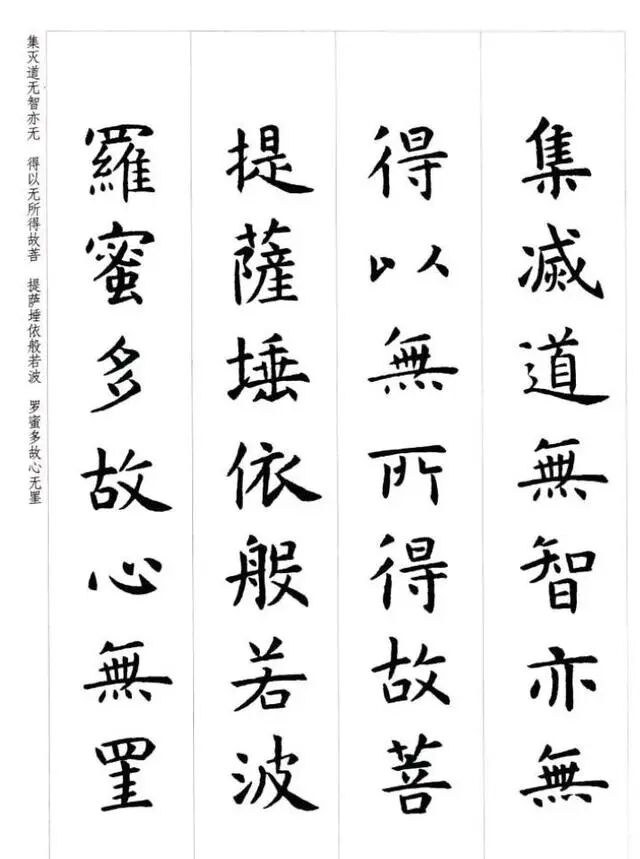 集滅道無智亦無
得以無所得故菩
提薩埵依般若波
羅蜜多故心無罣
集灭道无智亦无 得以无所得故菩 提萨埵依般若波 罗蜜多故心无罣